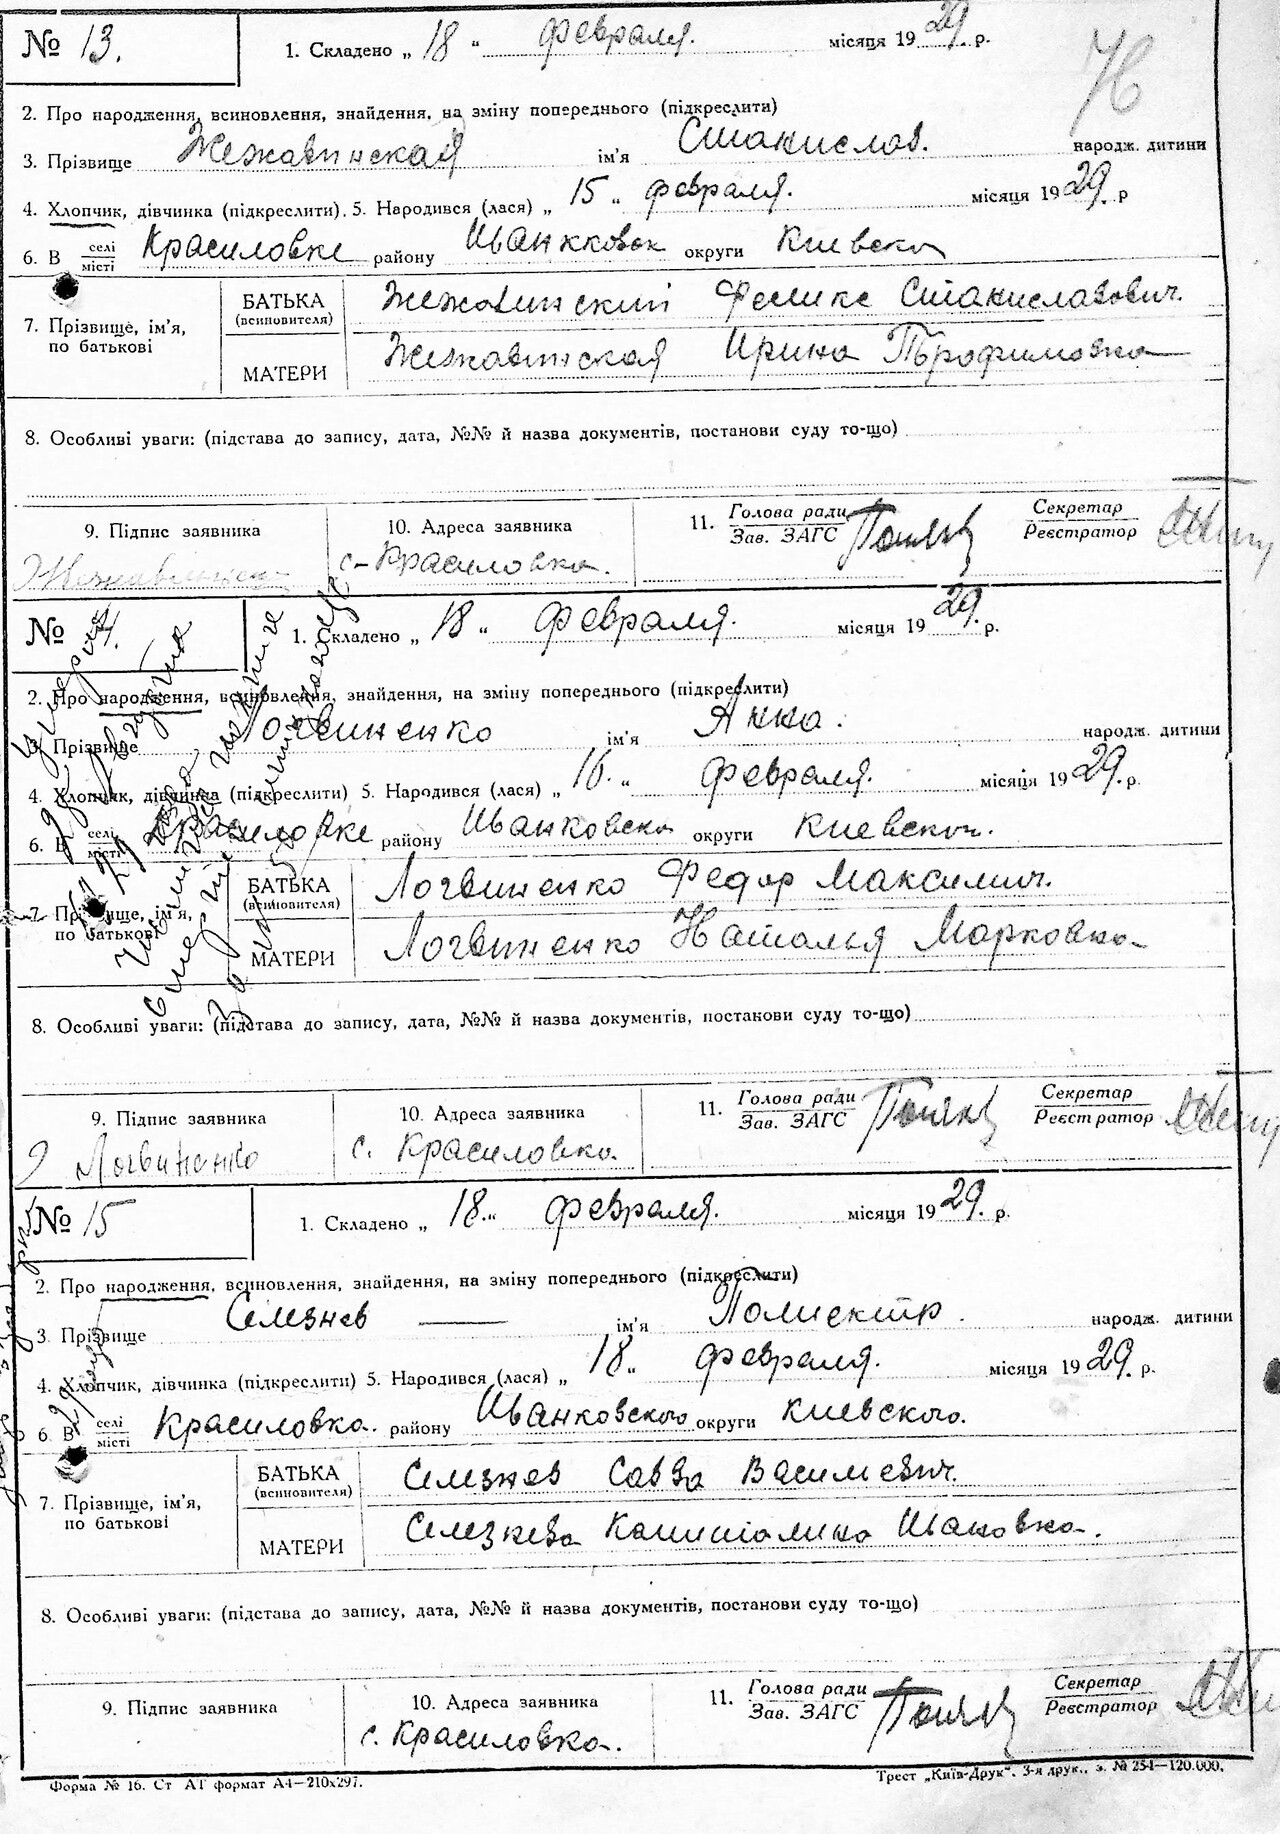 № 13. 1. Складено „ 18 " февраля. місяця 1929. р.
2. Про народження, всиновлення, знайдення, на зміну попереднього (підкреслити)
3. Прізвище Жежавинская ім'я Станислав. народж. дитини
4. Хлопчик, дівчинка (підкреслити). 5. Народився (лася) „ 15 " февраля. місяця 1929. р
6. В селі/місті Красиловке району округи Киевско
7. Прізвище, ім'я, по батькові
БАТЬКА (всиновителя) Жежавинский Феликс Станиславович.
МАТЕРИ Жежавинская Ирина
8. Особливі уваги: (підстава до запису, дата, №№ й назва документів, постанови суду то-що)
9. Підпис заявника
10. Адреса заявника с-Красиловка.
11. Голова ради/Зав. ЗАГС Секретар/Реєстратор
№ 1. Складено „ 18 " февраля. місяця 1929. р.
2. Про народження, всиновлення, знайдення, на зміну попереднього (підкреслити)
3. Прізвище Логвиненко ім'я Анна. народж. дитини
4. Хлопчик, дівчинка (підкреслити) 5. Народився (лася) „ 16. " февраля. місяця 1929. р.
6. В селі/місті Красиловке району Иванковско округи Киевской.
7. Прізвище, ім'я, по батькові
БАТЬКА (всиновителя) Логвиненко Федор Максимич.
МАТЕРИ Логвиненко Наталья Марковна
8. Особливі уваги: (підстава до запису, дата, №№ й назва документів, постанови суду то-що)
9. Підпис заявника Логвиненко
10. Адреса заявника с. Красиловка.
11. Голова ради/Зав. ЗАГС Секретар/Реєстратор
№ 15 1. Складено „ 18. " февраля. місяця 1929. р.
2. Про народження, всиновлення, знайдення, на зміну попереднього (підкреслити)
3. Прізвище Селезнев ім'я народж. дитини
4. Хлопчик, дівчинка (підкреслити) 5. Народився (лася) „ 18 " февраля. місяця 1929. р.
6. В селі/місті Красиловка. району Иванковского округи Киевского.
7. Прізвище, ім'я, по батькові
БАТЬКА (всиновителя) Селезнев Савва Василевич.
МАТЕРИ Селезнева Ивановна.
8. Особливі уваги: (підстава до запису, дата, №№ й назва документів, постанови суду то-що)
9. Підпис заявника
10. Адреса заявника с. Красиловка.
11. Голова ради/Зав. ЗАГС Секретар/Реєстратор
Форма № 16. Ст АТ формат А4—210х297.
Трест „Київ-Друк". 3-я друк., з. № 254—120.000.